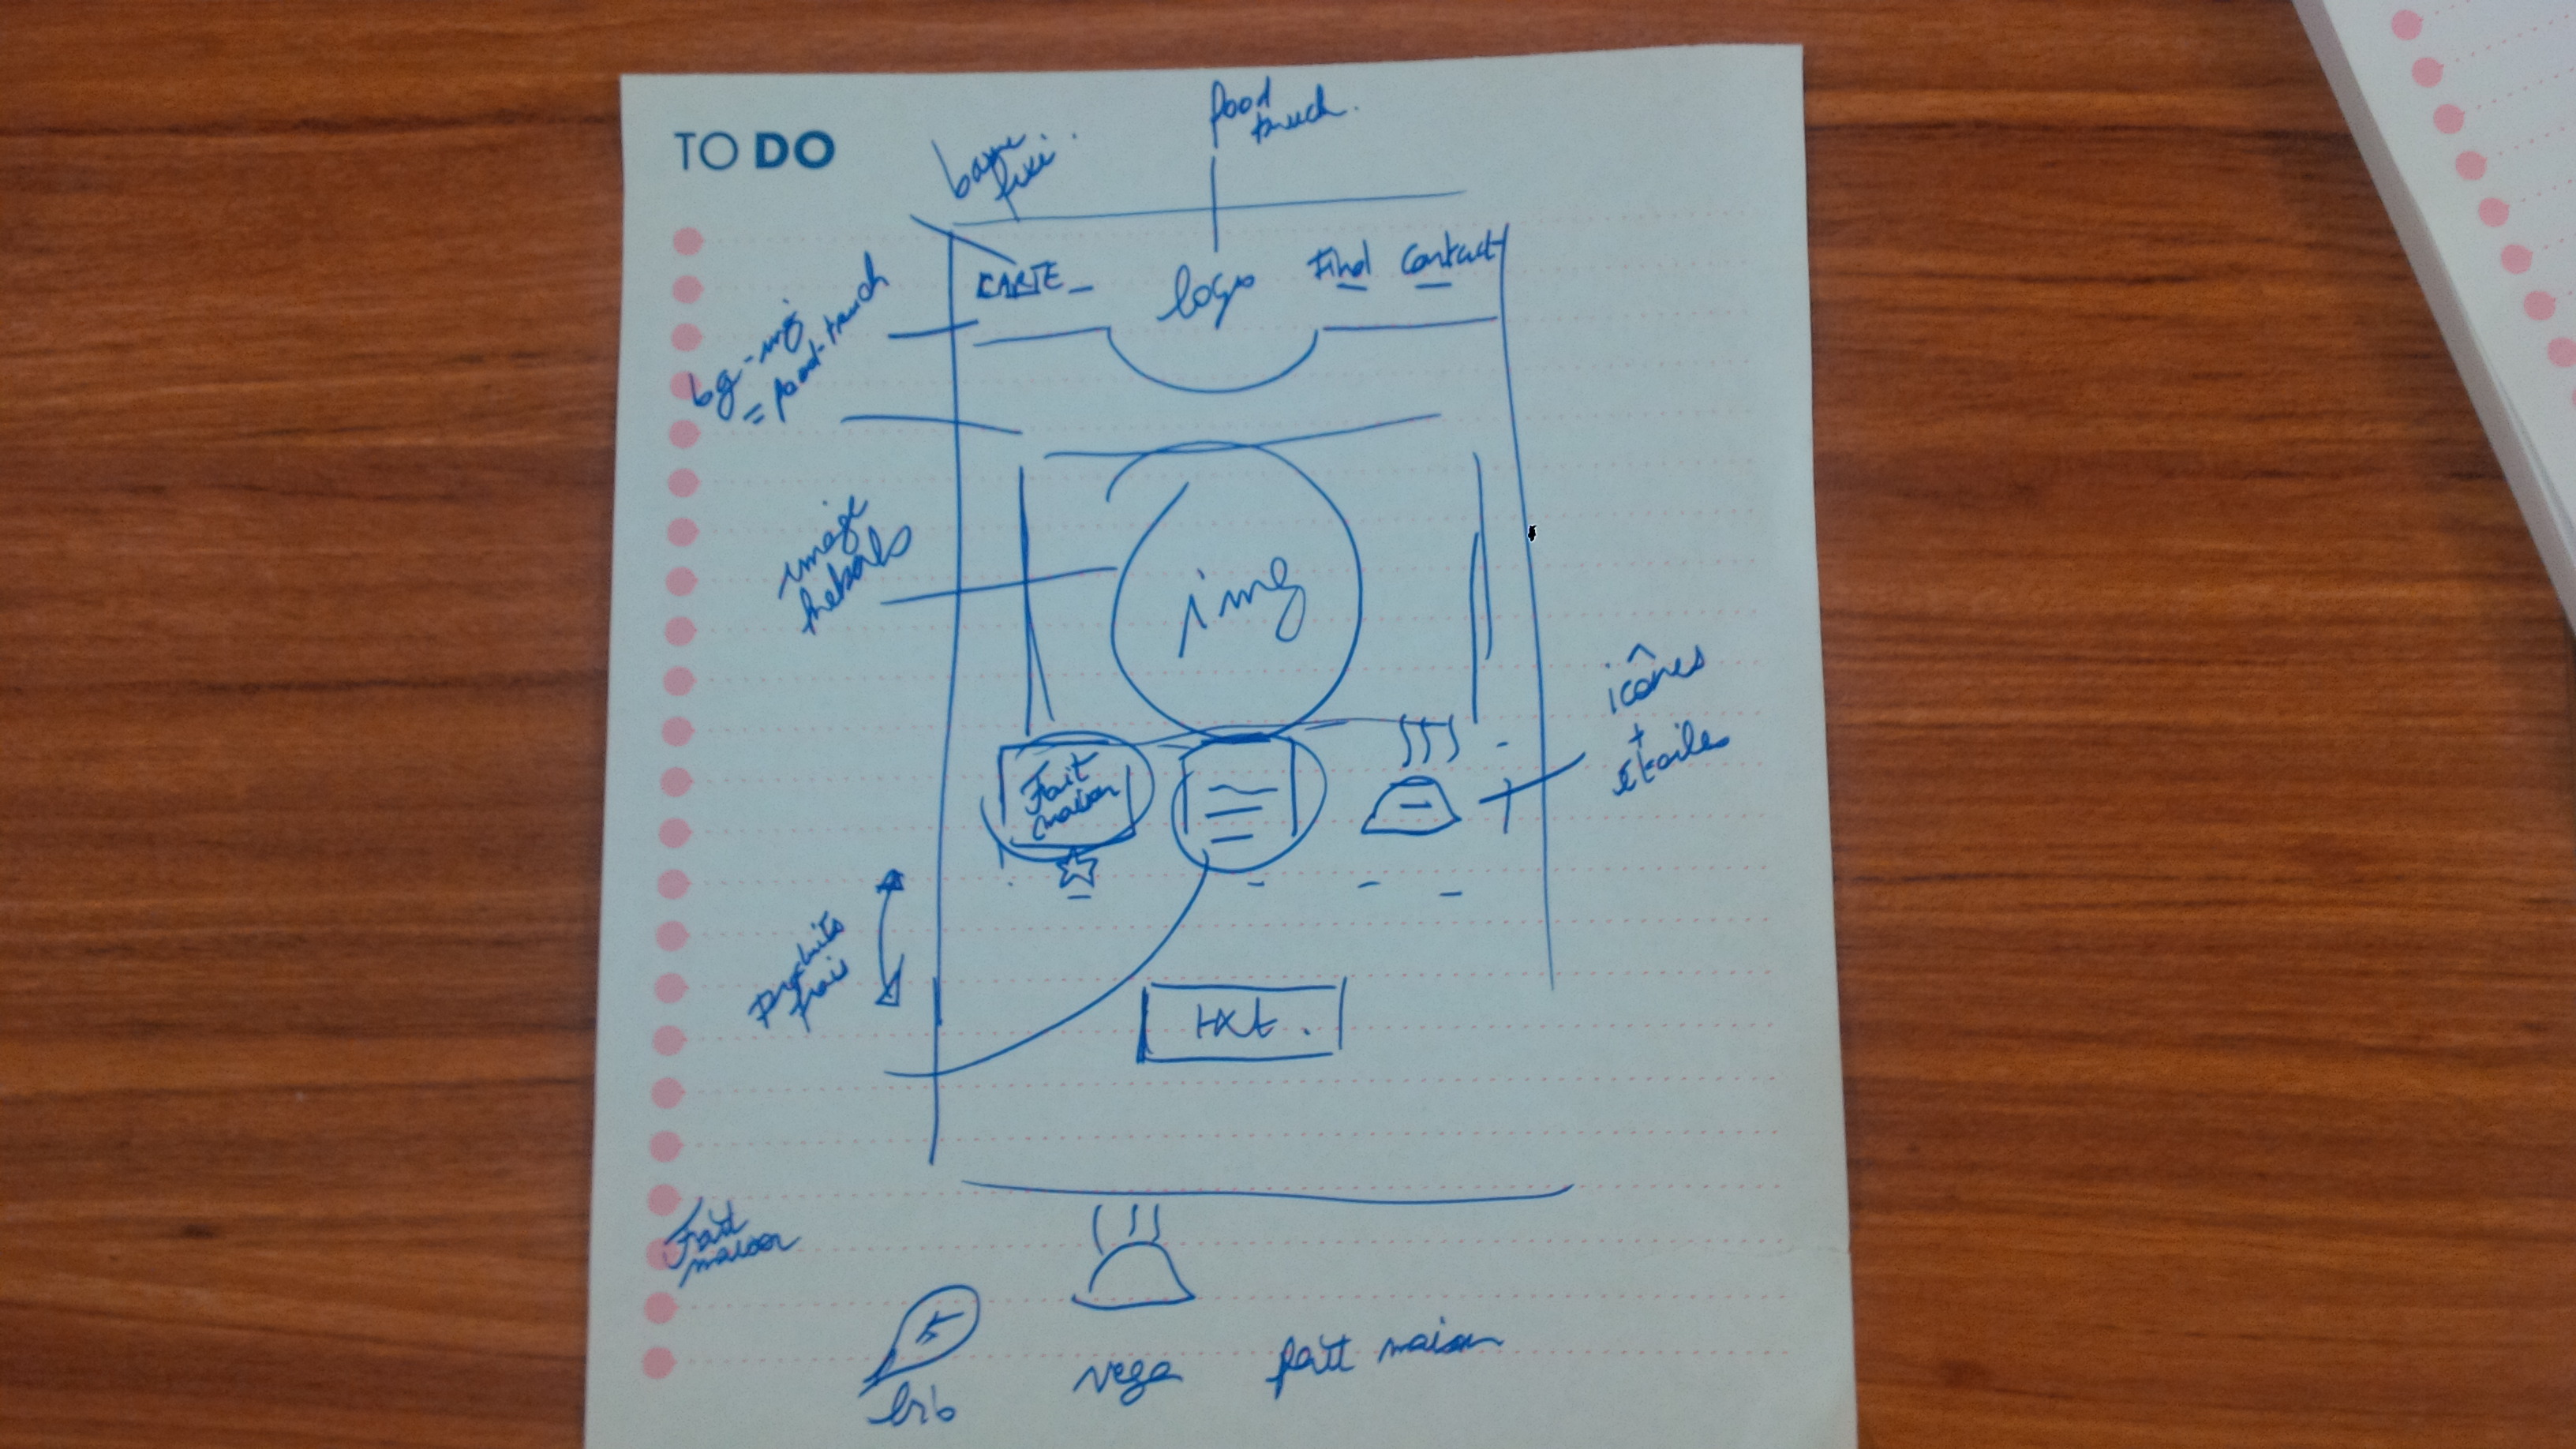 TO DO
food
truck.
barre
fixe
CARTE
logo
Find
Contact
bg-img
= food-truck
image
kebab
img
icônes
+
étoiles
Fait
maison
produits
frais
txt.
Fait
maison
bio
vege
fait maison